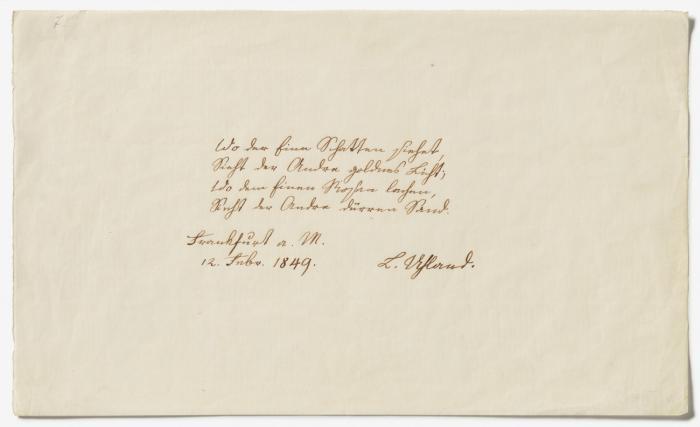 7
Wo der Eine Schatten siehet,
Sieht der Andre goldnes Licht;
Wo dem Einen Rosen lachen,
Sieht der Andre dürren Sand.
Frankfurt a. M.
12. Febr. 1849.
L. Uhland.